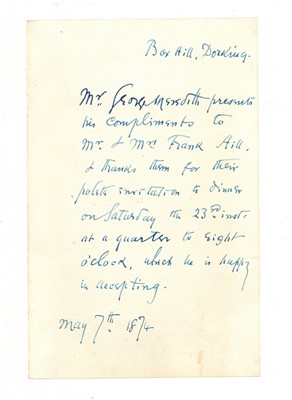 Box Hill, Dorking.
Mr. George Meredith presents
his compliments to
Mr. & Mrs Frank Hill.
& thanks them for their
polite invitation to dinner
on Saturday the 23rd inst.
at a quarter to eight
o'clock, which he is happy
in accepting.
May 7th 1874